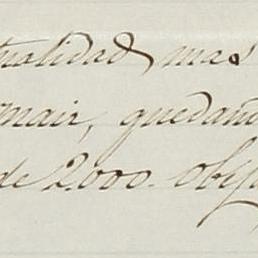 tualidad mas
mair, quedan
de 2.000. obj